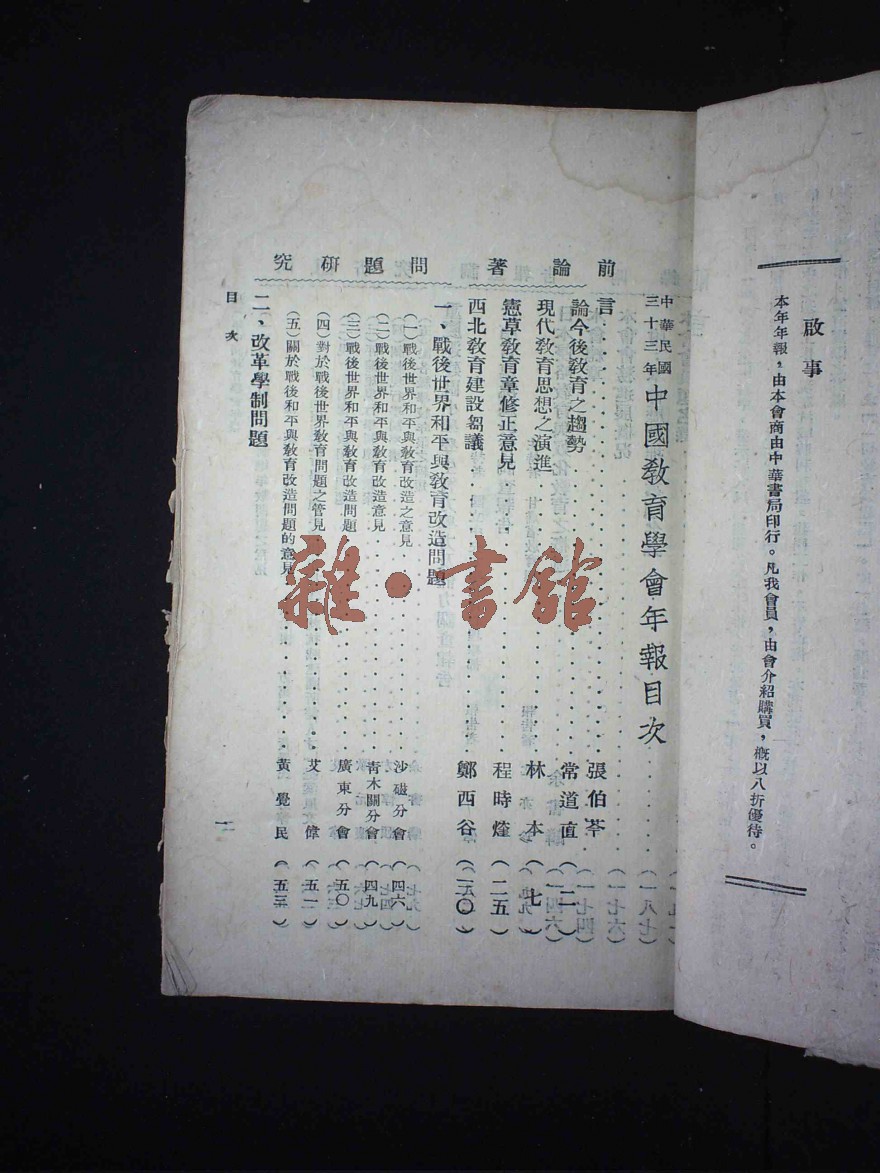 啟事
本年年報，由本會商由中華書局印行。凡我會員，由會介紹購買，概以八折優待。
中華民國三十三年 中國教育學會年報目次
前言……張伯苓
論著
論今後教育之趨勢……常道直（二）
現代教育思想之演進……林本（七）
憲草教育章修正意見……程時煃（二五）
西北教育建設芻議……鄭西谷
問題研究
一、戰後世界和平與教育改造問題
（一）戰後世界和平與教育改造之意見……沙磁分會（四六）
（二）戰後世界和平與教育改造意見……青木關分會（四九）
（三）戰後世界和平與教育改造問題……廣東分會（五〇）
（四）對於戰後世界教育問題之管見……艾偉（五一）
（五）關於戰後和平與教育改造問題的意見……黃覺民（五三）
二、改革學制問題
目次
一
雜·書館